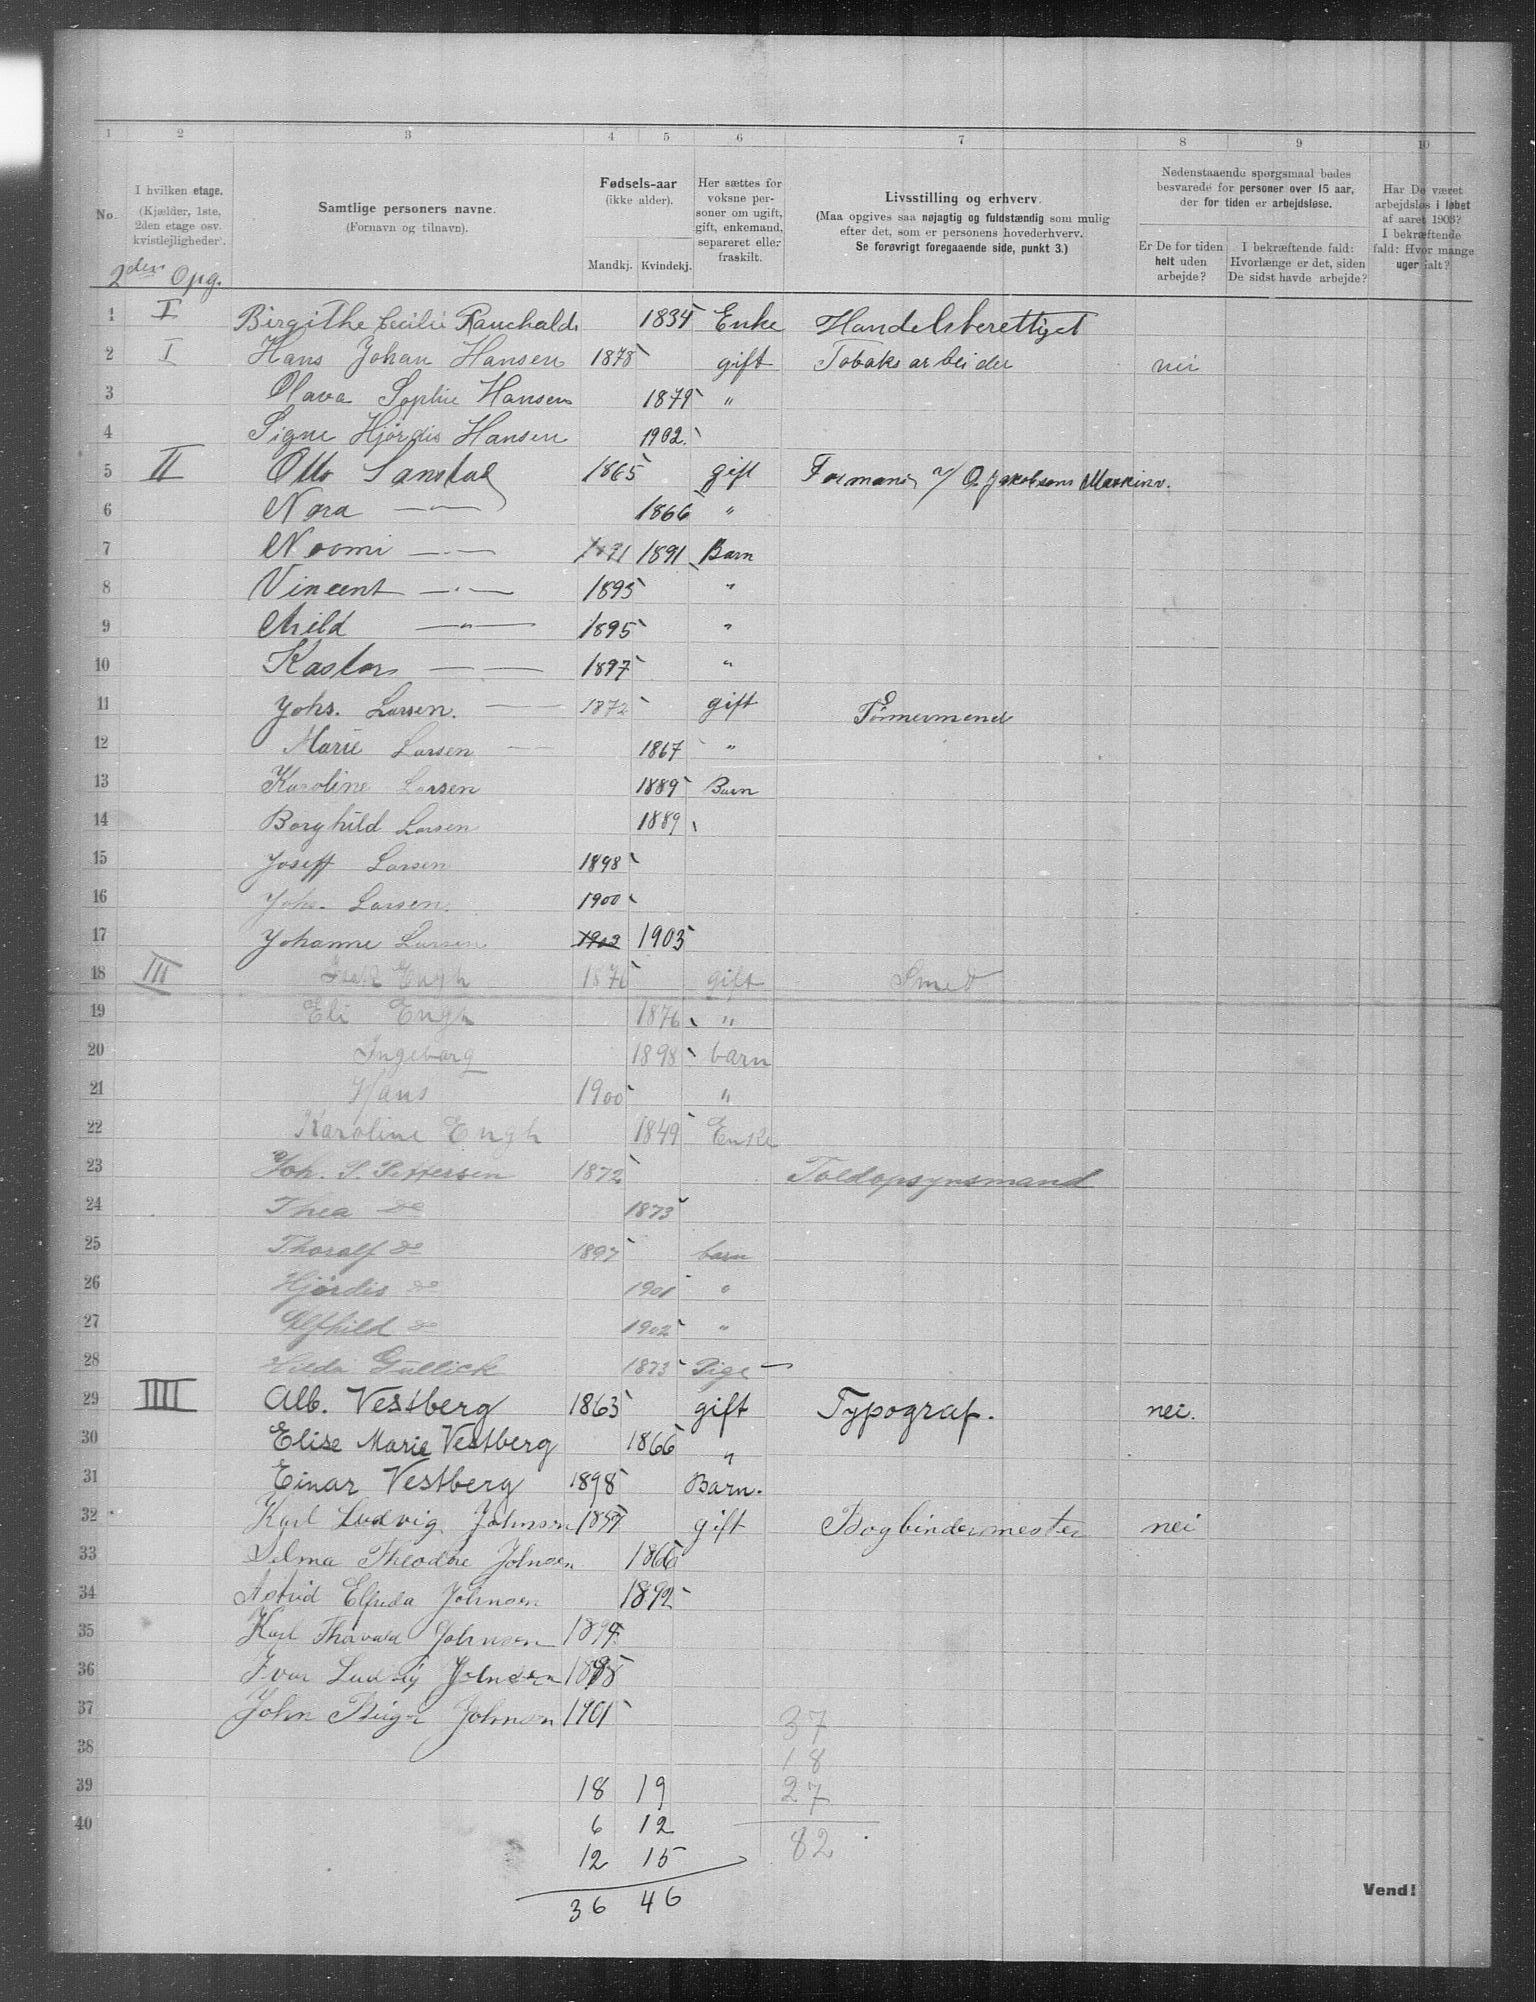 1 2 3 4 5 6 7 8 9 10
No.
I hvilken etage.
(Kjælder, 1ste,
2den etage osv.
kvistlejligheder).
Samtlige personers navne.
(Fornavn og tilnavn).
Fødsels-aar
(ikke alder).
Mandkj. Kvindekj.
Her sættes for
voksne per-
soner om ugift,
gift, enkemand,
separeret eller
fraskilt.
Livsstilling og erhverv.
(Maa opgives saa nøjagtig og fuldstændig som mulig
efter det, som er personens hovederhverv.
Se forøvrigt foregaaende side, punkt 3.)
Nedenstaaende spørgsmaal bedes
besvarede for personer over 15 aar,
der for tiden er arbejdsløse.
Er De for tiden
helt uden
arbejde?
I bekræftende fald:
Hvorlænge er det, siden
De sidst havde arbejde?
Har De været
arbejdsløs i løbet
af aaret 1903?
I bekræftende
fald: Hvor mange
uger ialt?
2den Opg.
1 I Birgithe Cecilie 1834 Enke Handelsberettiget
2 I Hans Johan Hansen 1878 gift Tobaksarbeider nei
3 Olava Sophie Hansen 1879 "
4 Signe Hjørdis Hansen 1902
5 II Otto 1865 gift Formand v/ O. Jakobsens
6 Nora — " — 1866 "
7 Noomi — " — 1891 1891 Barn
8 Vincent — " — 1895 "
9 — " — 1895 "
10 — " — 1897 "
11 Johs. Larsen. 1872 gift Tømmermand
12 Marie Larsen 1867 "
13 Karoline Larsen 1889 Barn
14 Borghild Larsen 1889
15 Joseff Larsen 1898
16 Johs. Larsen. 1900
17 Johanne Larsen 1903 1903
18 III Engh gift Smed
19 Eli Engh 1876 "
20 Ingeborg 1898 barn
21 Hans 1900 "
22 Karoline Engh 1849 Enke
23 Joh. P. Pettersen 1872 Toldopsynsmand
24 Thea do 1873
25 Thoralf do 1897 barn
26 Hjørdis do 1901 "
27 Alfhild do 1902 "
28 Hilda Gullick 1873 Pige
29 IIII Alb. Vestberg 1863 gift Typograf. nei.
30 Elise Marie Vestberg 1866 "
31 Einar Vestberg 1898 Barn.
32 Karl Ludvig Johnsen 1857 gift Bogbindermester nei
33 Selma Theodore Johnsen 1866
34 Astrid Elfrida Johnsen 1892
35 Karl Thorvald Johnsen 1894
36 Ivar Ludvig Johnsen 1898
37 John Birger Johnsen 1901 37
38 18
39 18 19 27
40 6 12 82
12 15
36 46
Vend!